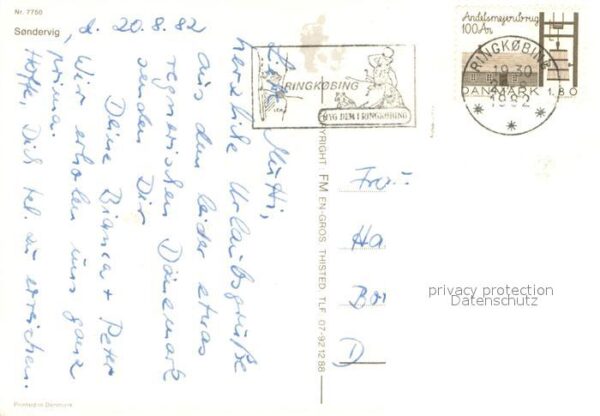 Nr. 7750
Søndervig
d. 20.8.82
Mutti,
herzliche Urlaubsgrüße
aus dem leider etwas
regnerischen Dänemark
senden Dir
Deine Bianca + Peter
Wir erholen uns ganz
prima.
Hoffe, Dich tel. zu erreichen.
Printed in Denmark
COPYRIGHT FM EN-GROS THISTED. TLF 07-92 12 88
RINGKØBING
BYG DEM I RINGKØBING
Andelsmejeribrug
100 År
DANMARK 1.80
RINGKØBING
19.30
1982
Frau
Ha
Bor
D
privacy protection
Datenschutz